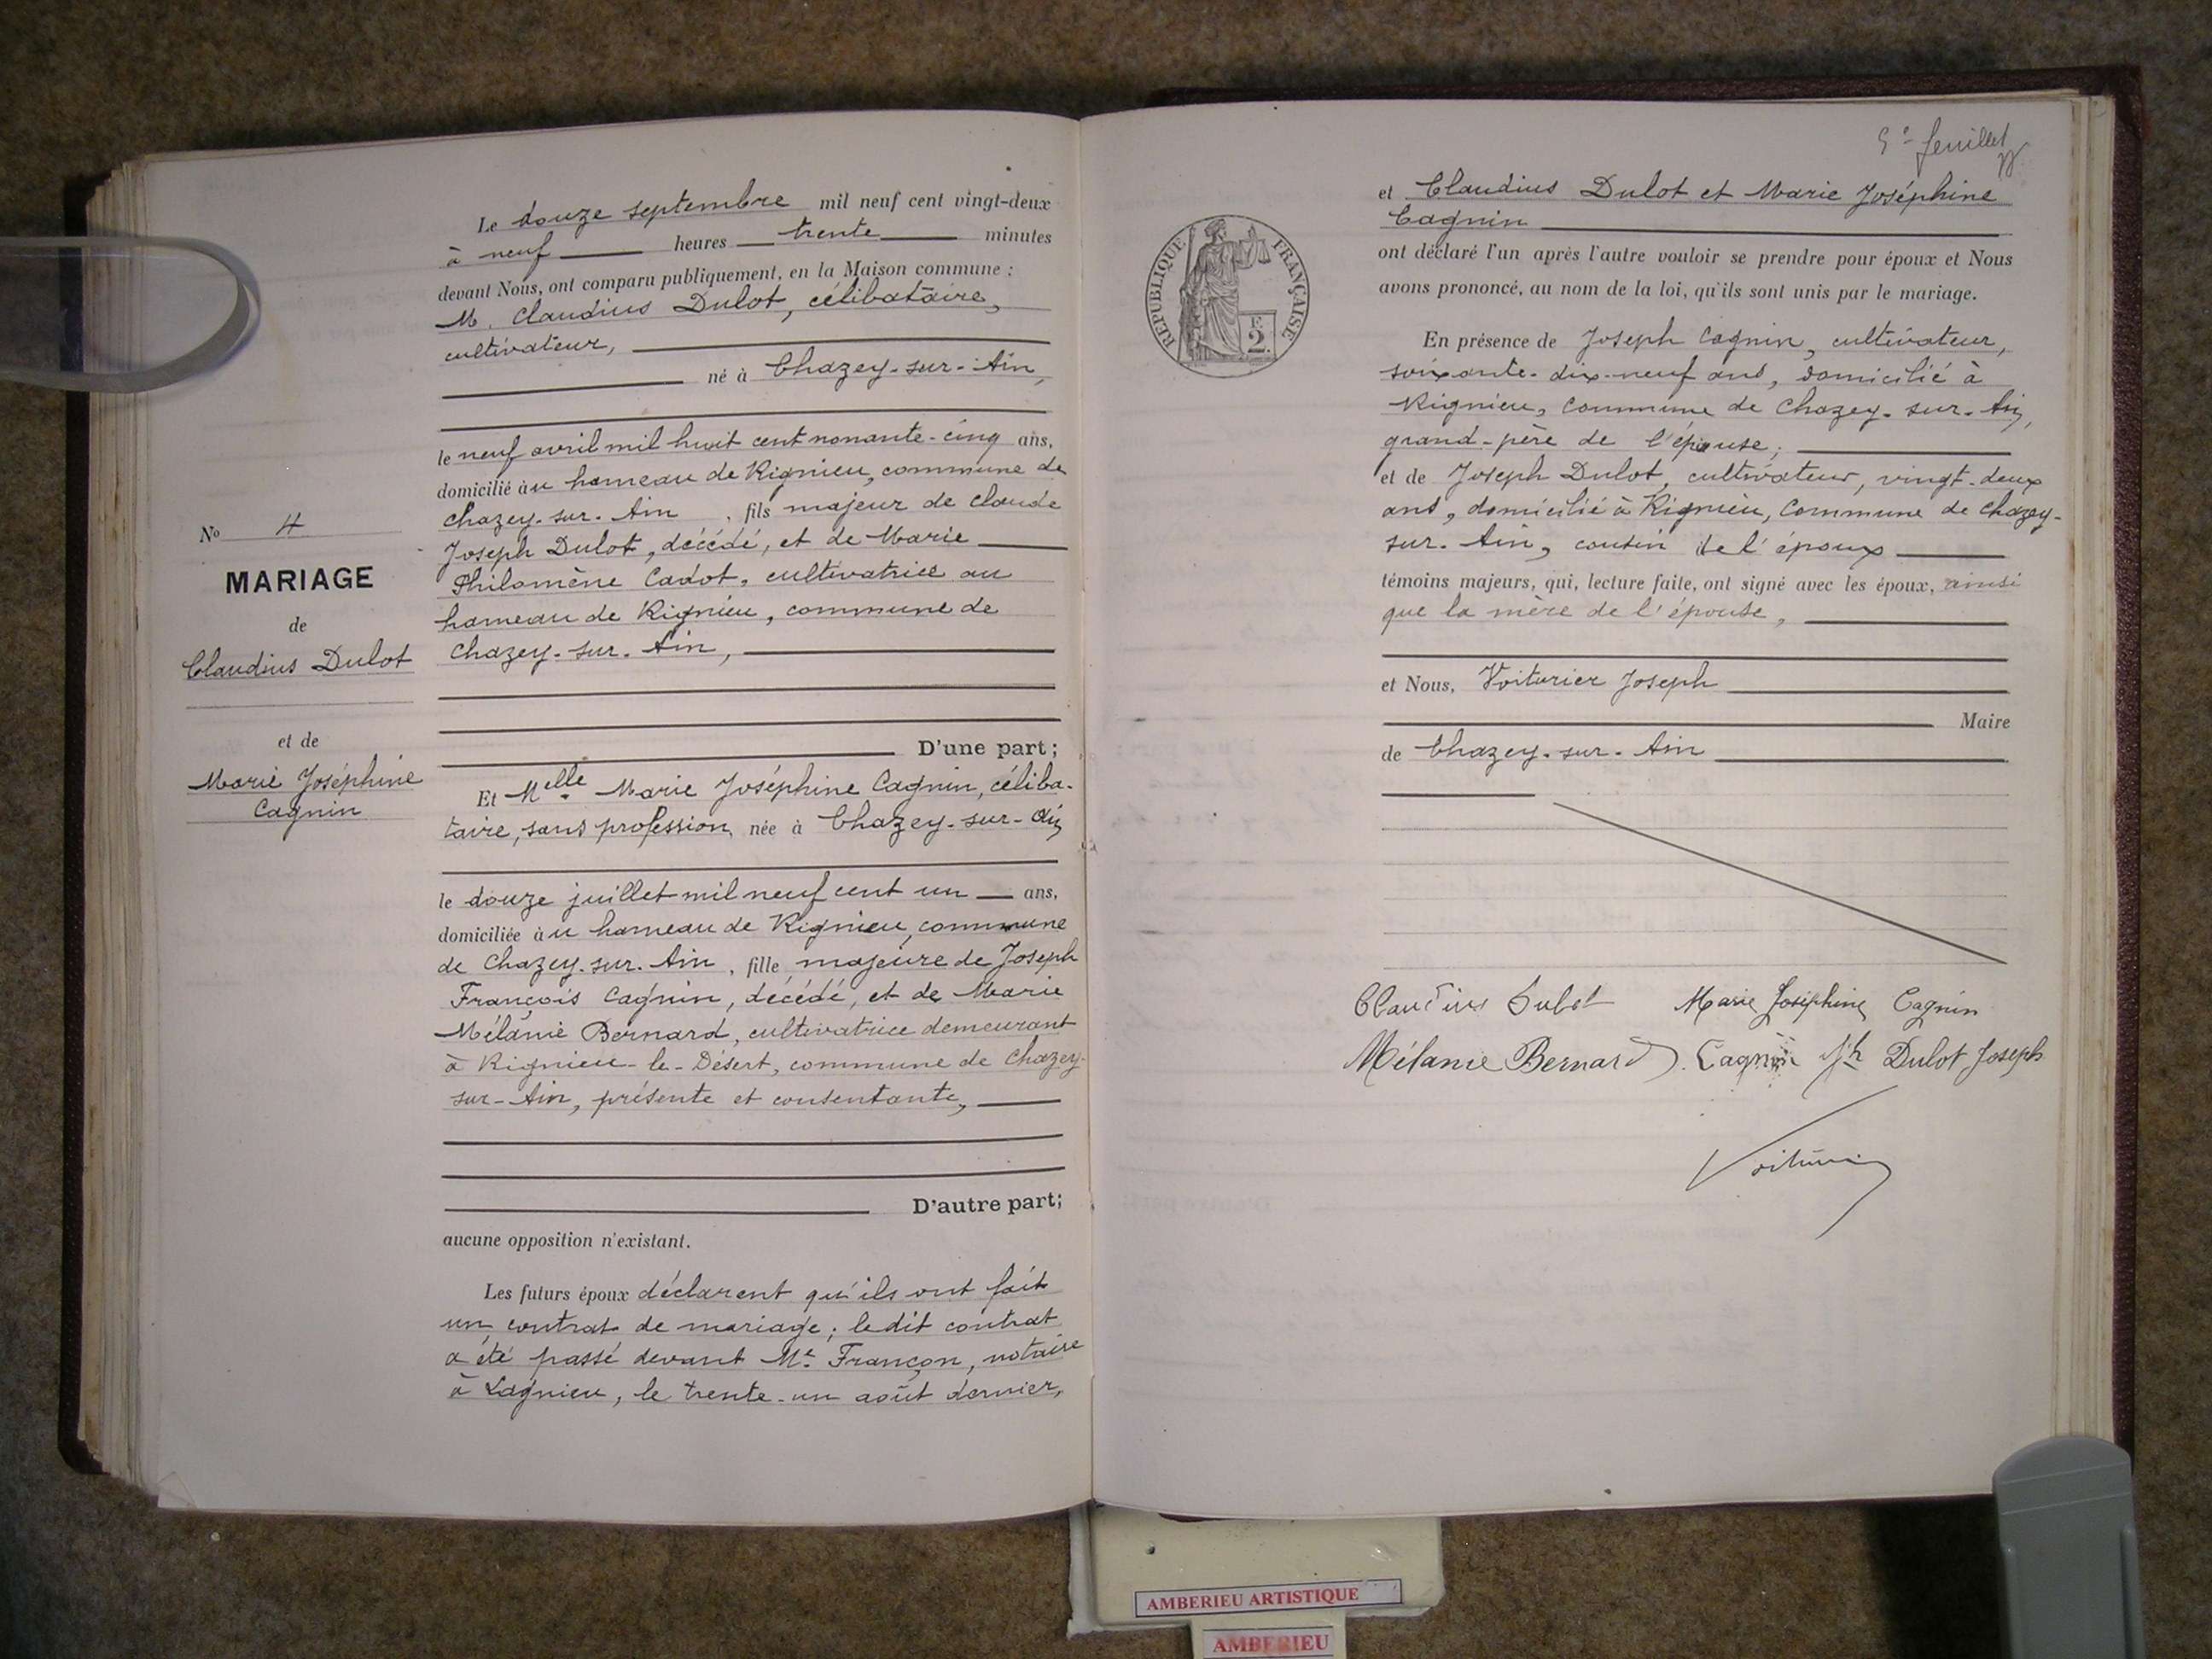 Le douze septembre mil neuf cent vingt-deux
à neuf heures trente minutes
devant Nous, ont comparu publiquement, en la Maison commune :
M. Claudius Dulot, célibataire,
cultivateur,
né à Chazey-sur-Ain,
le neuf avril mil huit cent nonante-cinq ans,
domicilié au hameau de Rignieu, commune de
Chazey-sur-Ain, fils majeur de Claude
Joseph Dulot, décédé, et de Marie
Philomène Cadot, cultivatrice au
hameau de Rignieu, commune de
Chazey-sur-Ain,
D'une part ;
No 4
MARIAGE
de
Claudius Dulot
et de
Marie Joséphine
Cagnin
Et Melle Marie Joséphine Cagnin, céliba-
taire, sans profession, née à Chazey-sur-Ain,
le douze juillet mil neuf cent un ans,
domiciliée au hameau de Rignieu, commune
de Chazey-sur-Ain, fille majeure de Joseph
François Cagnin, décédé, et de Marie
Mélanie Bernard, cultivatrice demeurant
à Rignieu-le-Désert, commune de Chazey-
sur-Ain, présente et consentante,
D'autre part;
aucune opposition n'existant.
Les futurs époux déclarent qu'ils ont fait
un contrat de mariage ; ledit contrat
a été passé devant Me Françon, notaire
à Lagnieu, le trente-un août dernier,
5e feuillet
REPUBLIQUE FRANÇAISE
F.
2.
et Claudius Dulot et Marie Joséphine
Cagnin
ont déclaré l'un après l'autre vouloir se prendre pour époux et Nous
avons prononcé, au nom de la loi, qu'ils sont unis par le mariage.
En présence de Joseph Cagnin, cultivateur,
soixante-dix-neuf ans, domicilié à
Rignieu, commune de Chazey-sur-Ain,
grand-père de l'épouse ;
et de Joseph Dulot, cultivateur, vingt-deux
ans, domicilié à Rignieu, Commune de Chazey-
sur-Ain, cousin de l'époux
témoins majeurs, qui, lecture faite, ont signé avec les époux, ainsi
que la mère de l'épouse,
et Nous, Voiturier Joseph
Maire
de Chazey-sur-Ain
Claudius Dulot Marie Joséphine Cagnin
Mélanie Bernard. Cagnin Jh Dulot Joseph
Voiturier
AMBERIEU ARTISTIQUE
AMBERIEU